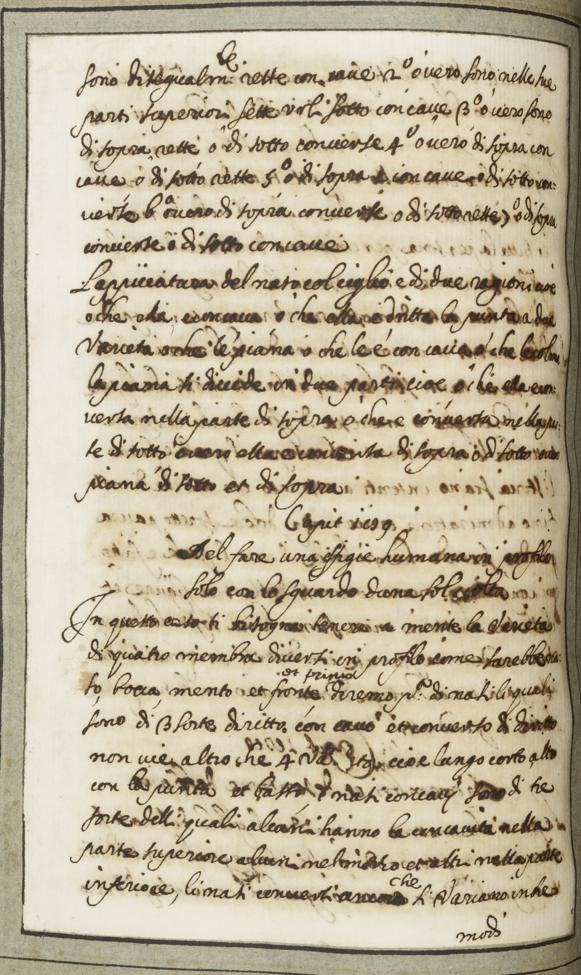 sono disegualm: rette con cave 2º overo sono nelle sue
parti superiori rette et di sotto concave 3º overo sono
di sopra rette o di sotto converse 4º overo di sopra con
cave o di sotto rette 5º o di sopra concave o di sotto con:
verse 6º overo di sopra converse o di sotto rette 7º o di sopra
converse o di sotto concave
L'appiccatura del naso col ciglio e di due ragioni cioe
o che ella e concava o che ella e dritta la punta a due
Varieta o che le piana o che le e concava o che le colma
la piana si divide in due parti cioe o che ella e con:
versa nella parte di sopra o che e conversa nella par:
te di sotto overo ella e conversa di sopra o di sotto over
piana di sotto et di sopra
Capit 189
Del fare una effigie humana in profilo
solo con lo sguardo d'una sol volta
In questo caso ti bisogna tenere a mente la Varieta
di quatro membra diversi in profilo come sarebbe na:
so, bocca mento et fronte et prima diremo pª. di nasi li quali
sono di 3 sorte diritto con cavo et converso di diritto
non vie altro che 4 cioe lungo corto alto
con la punta et basso i nasi concavi sono di tre
sorte delli quali alcuni hanno la concavita nella
parte superiore alcuni nel mezzo et altri nella parte
inferiore, li nasi conversi ancora che si Variano in tre
modi